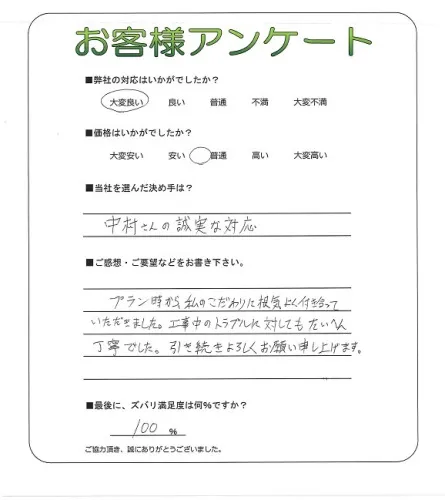 お客様アンケート
■弊社の対応はいかがでしたか？
大変良い 良い 普通 不満 大変不満
■価格はいかがでしたか？
大変安い 安い 普通 高い 大変高い
■当社を選んだ決め手は？
中村さんの誠実な対応
■ご感想・ご要望などをお書き下さい。
プラン時から私のこだわりに根気よく付き合って
いただきました。工事中のトラブルに対してもたいへん
丁寧でした。引き続きよろしくお願い申し上げます。
■最後に、ズバリ満足度は何％ですか？
100 %
ご協力頂き、誠にありがとうございました。